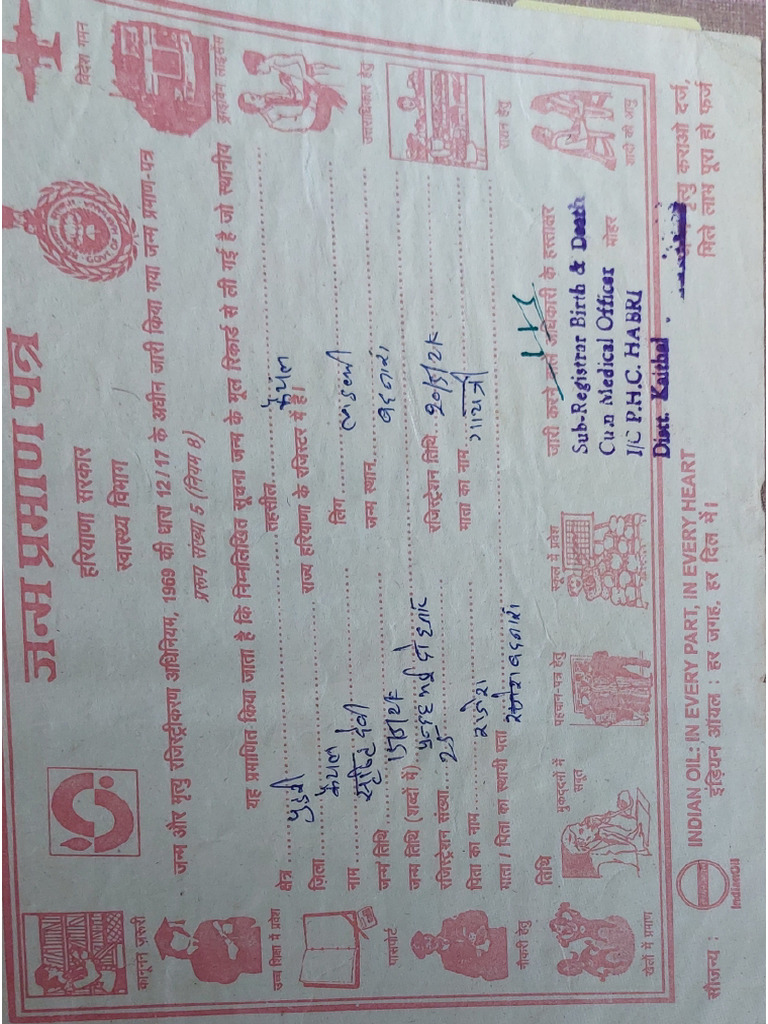 जन्म प्रमाण पत्र
हरियाणा सरकार
स्वास्थ्य विभाग
GOVT OF
जन्म और मृत्यु रजिस्ट्रीकरण अधिनियम, 1969 की धारा 12/17 के अधीन जारी किया गया जन्म प्रमाण-पत्र
प्ररूप संख्या 5 (नियम 8)
यह प्रमाणित किया जाता है कि निम्नलिखित सूचना जन्म के मूल रिकार्ड से ली गई है जो स्थानीय
क्षेत्र तहसील कैथल
ज़िला कैथल राज्य हरियाणा के रजिस्टर में है।
नाम सृष्टि देवी लिंग लडकी
जन्म तिथि जन्म स्थान
जन्म तिथि (शब्दों में)
रजिस्ट्रेशन संख्या 25 रजिस्ट्रेशन तिथि
पिता का नाम राजेश माता का नाम गायत्री
माता / पिता का स्थायी पता
तिथि
जारी करने वाले अधिकारी के हस्ताक्षर
मोहर
Sub-Registrar Birth & Death
Cum Medical Officer
I/C P.H.C. HABRI
Distt. Kaithal
कानूनन ज़रूरी
उच्च शिक्षा में प्रवेश
पासपोर्ट
नौकरी हेतु
खेलों में प्रमाण
मुकद्दमों में सबूत
पहचान-पत्र हेतु
स्कूल में प्रवेश
विदेश गमन
ड्राइविंग लाइसेंस
उत्तराधिकार हेतु
राशन हेतु
शादी की आयु
सौजन्य :
IndianOil
INDIAN OIL: IN EVERY PART, IN EVERY HEART
इंडियन ऑयल : हर जगह, हर दिल में।
मृत्यु कराओ दर्ज,
मिले लाभ पूरा हो फर्ज